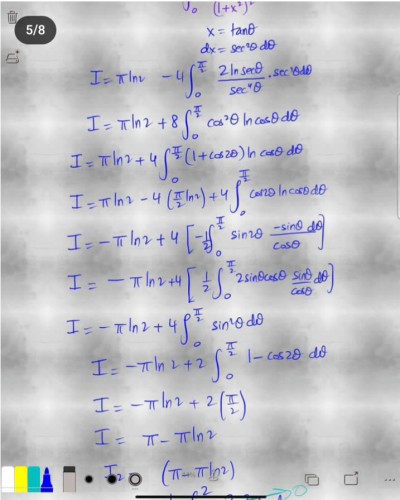 5/8
(1+x²)²
x = tanθ
dx = sec²θ dθ
I = πln2 - 4∫₀^(π/2) 2 ln secθ / sec⁴θ . sec²θ dθ
I = πln2 + 8∫₀^(π/2) cos²θ ln cosθ dθ
I = πln2 + 4∫₀^(π/2) (1+cos2θ) ln cosθ dθ
I = πln2 - 4(π/2 ln2) + 4∫₀^(π/2) cos2θ ln cosθ dθ
I = -πln2 + 4[-1/2∫₀^(π/2) sin2θ -sinθ/cosθ dθ]
I = -πln2 + 4[1/2∫₀^(π/2) 2sinθcosθ sinθ/cosθ dθ]
I = -πln2 + 4∫₀^(π/2) sin²θ dθ
I = -πln2 + 2∫₀^(π/2) 1-cos2θ dθ
I = -πln2 + 2(π/2)
I = π - πln2
(π-πln2)